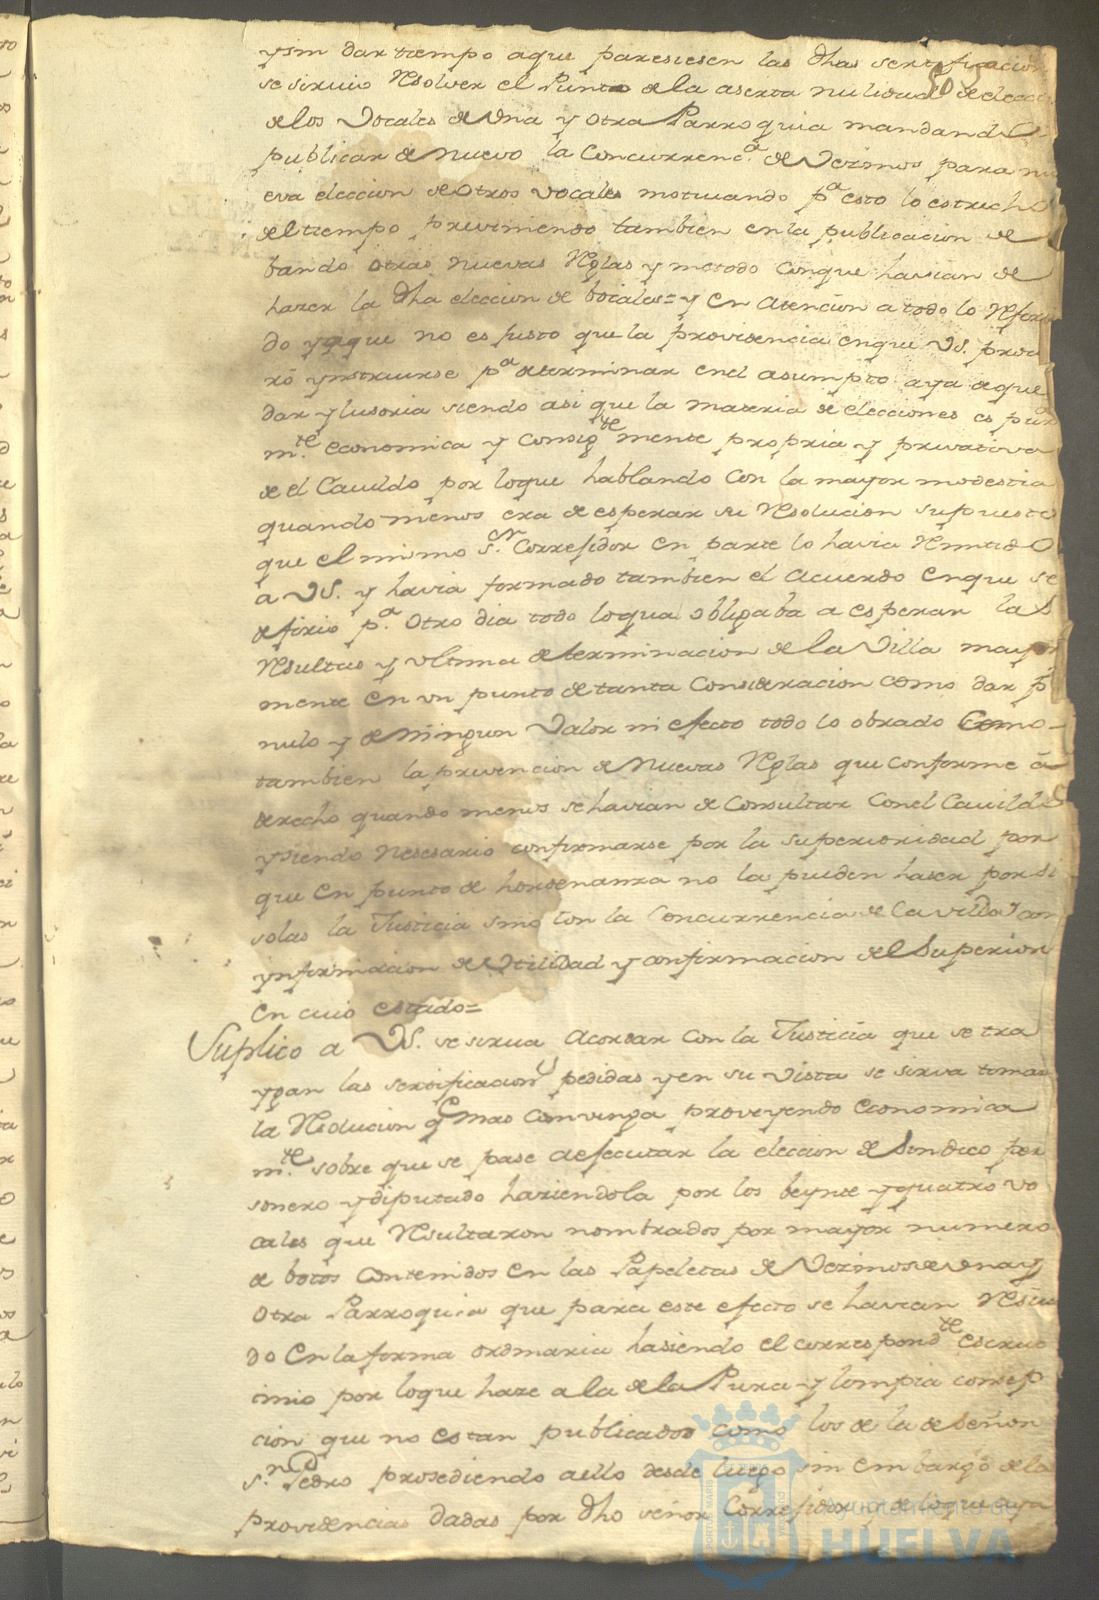 ysin dar tiempo aque paresiesen las dhas sertificacion
se siruio Resolver el Punto de la aserta nulidad de elecci
de los Vocales de Vna y otra Parroquia mandando
publicar de nuevo la Concurrenc.ª de Vezinos para nu
eva eleccion de Otros vocales motivando pª esto lo estrecho
del tiempo previniendo tambien en la publicacion de
bando otras nuevas Reglas y metodo conque havian de
hazer la dha eleccion de bocales= y en atencion a todo lo Referi
do yque no es justo que la providencia enque VS. procu
ró ynstruirse pª determinar en el asumpto aya de que
dar ylusoria siendo asi que la materia de elecciones es pura
m.te economica y Consig.te mente propria y privativa
de el Cavildo por loque hablando Con la mayor modestia
quando menos era de esperar su Resolucion supuesto
que el mismo s.or Corregidor en parte lo havia Remitido
a VS. y havia formado tambien el Acuerdo enque se
defirio p.ª Otro dia todo loqual obligaba a esperar las
Resultas y vltima determinacion de la Villa mayor
mente en vn punto de tanta Consideracion como dar p.r
nulo y de ningun Valor ni efecto todo lo obrado Como
tambien la prevencion de Nuevas Reglas que conforme á
derecho quando menos se havian de Consultar Con el Cavildo
ysiendo Nesesario confirmarse por la superioridad por
que en punto de hordenanza no la pueden haser por si
solas la Justicia sino Con la Concurrencia de la villa y con
ynformacion de Vtilidad y confirmacion del Superior
en cuio estado=
Suplico a VS. se sirva acordar con la Justicia que se tra
ygan las sertificacion.s pedidas yen su vista se sirva tomar
la Resolucion q.e mas convenga proveyendo economica
m.te sobre que se pase aejecutar la eleccion de Sindico per
sonero ydiputado haziendola por los beynte yquatro vo
cales que Resultaron nombrados por mayor numero
de botos Contenidos en las Papeletas de Vezinos de vna y
Otra Parroquia que para este efecto se havian Resivi
do en la forma ordinaria hasiendo el correspond.te escruti
nio por loque haze a la de la Pura y limpia consep
cion que no estan publicados como los de la de señor
s.n Pedro prosediendo aello desde luego sin embargo de las
providencias dadas por dho señor Corregidor y de loque aya
Ayuntamiento de
HUELVA